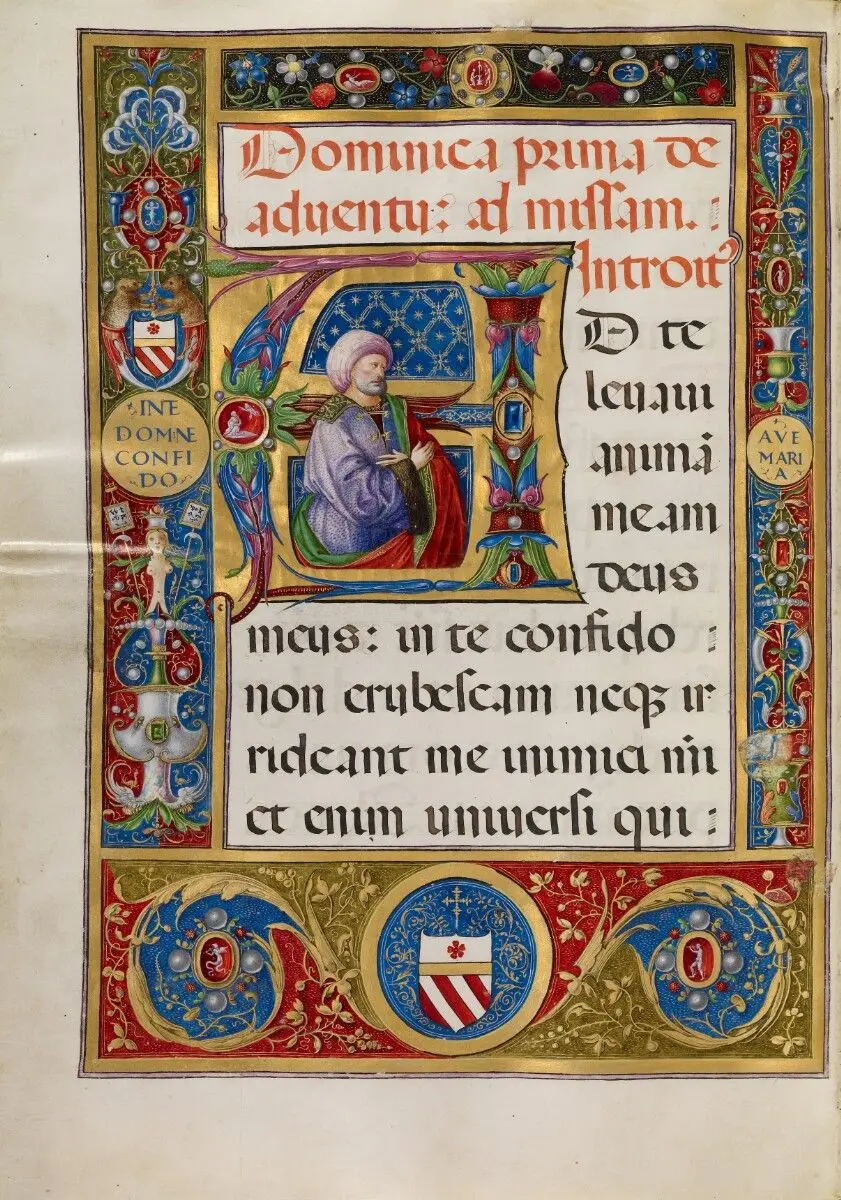 Dominica prima de
aduentu: ad missam. :
Introitꝰ
AD te
leuaui
animā
meam
deus
meus: in te confido :
non erubescam neqꝫ ir
rideant me inimici mĩ
et enim uniuersi qui :
IN TE
DOMNE
CONFI
DO
AVE
MARI
A